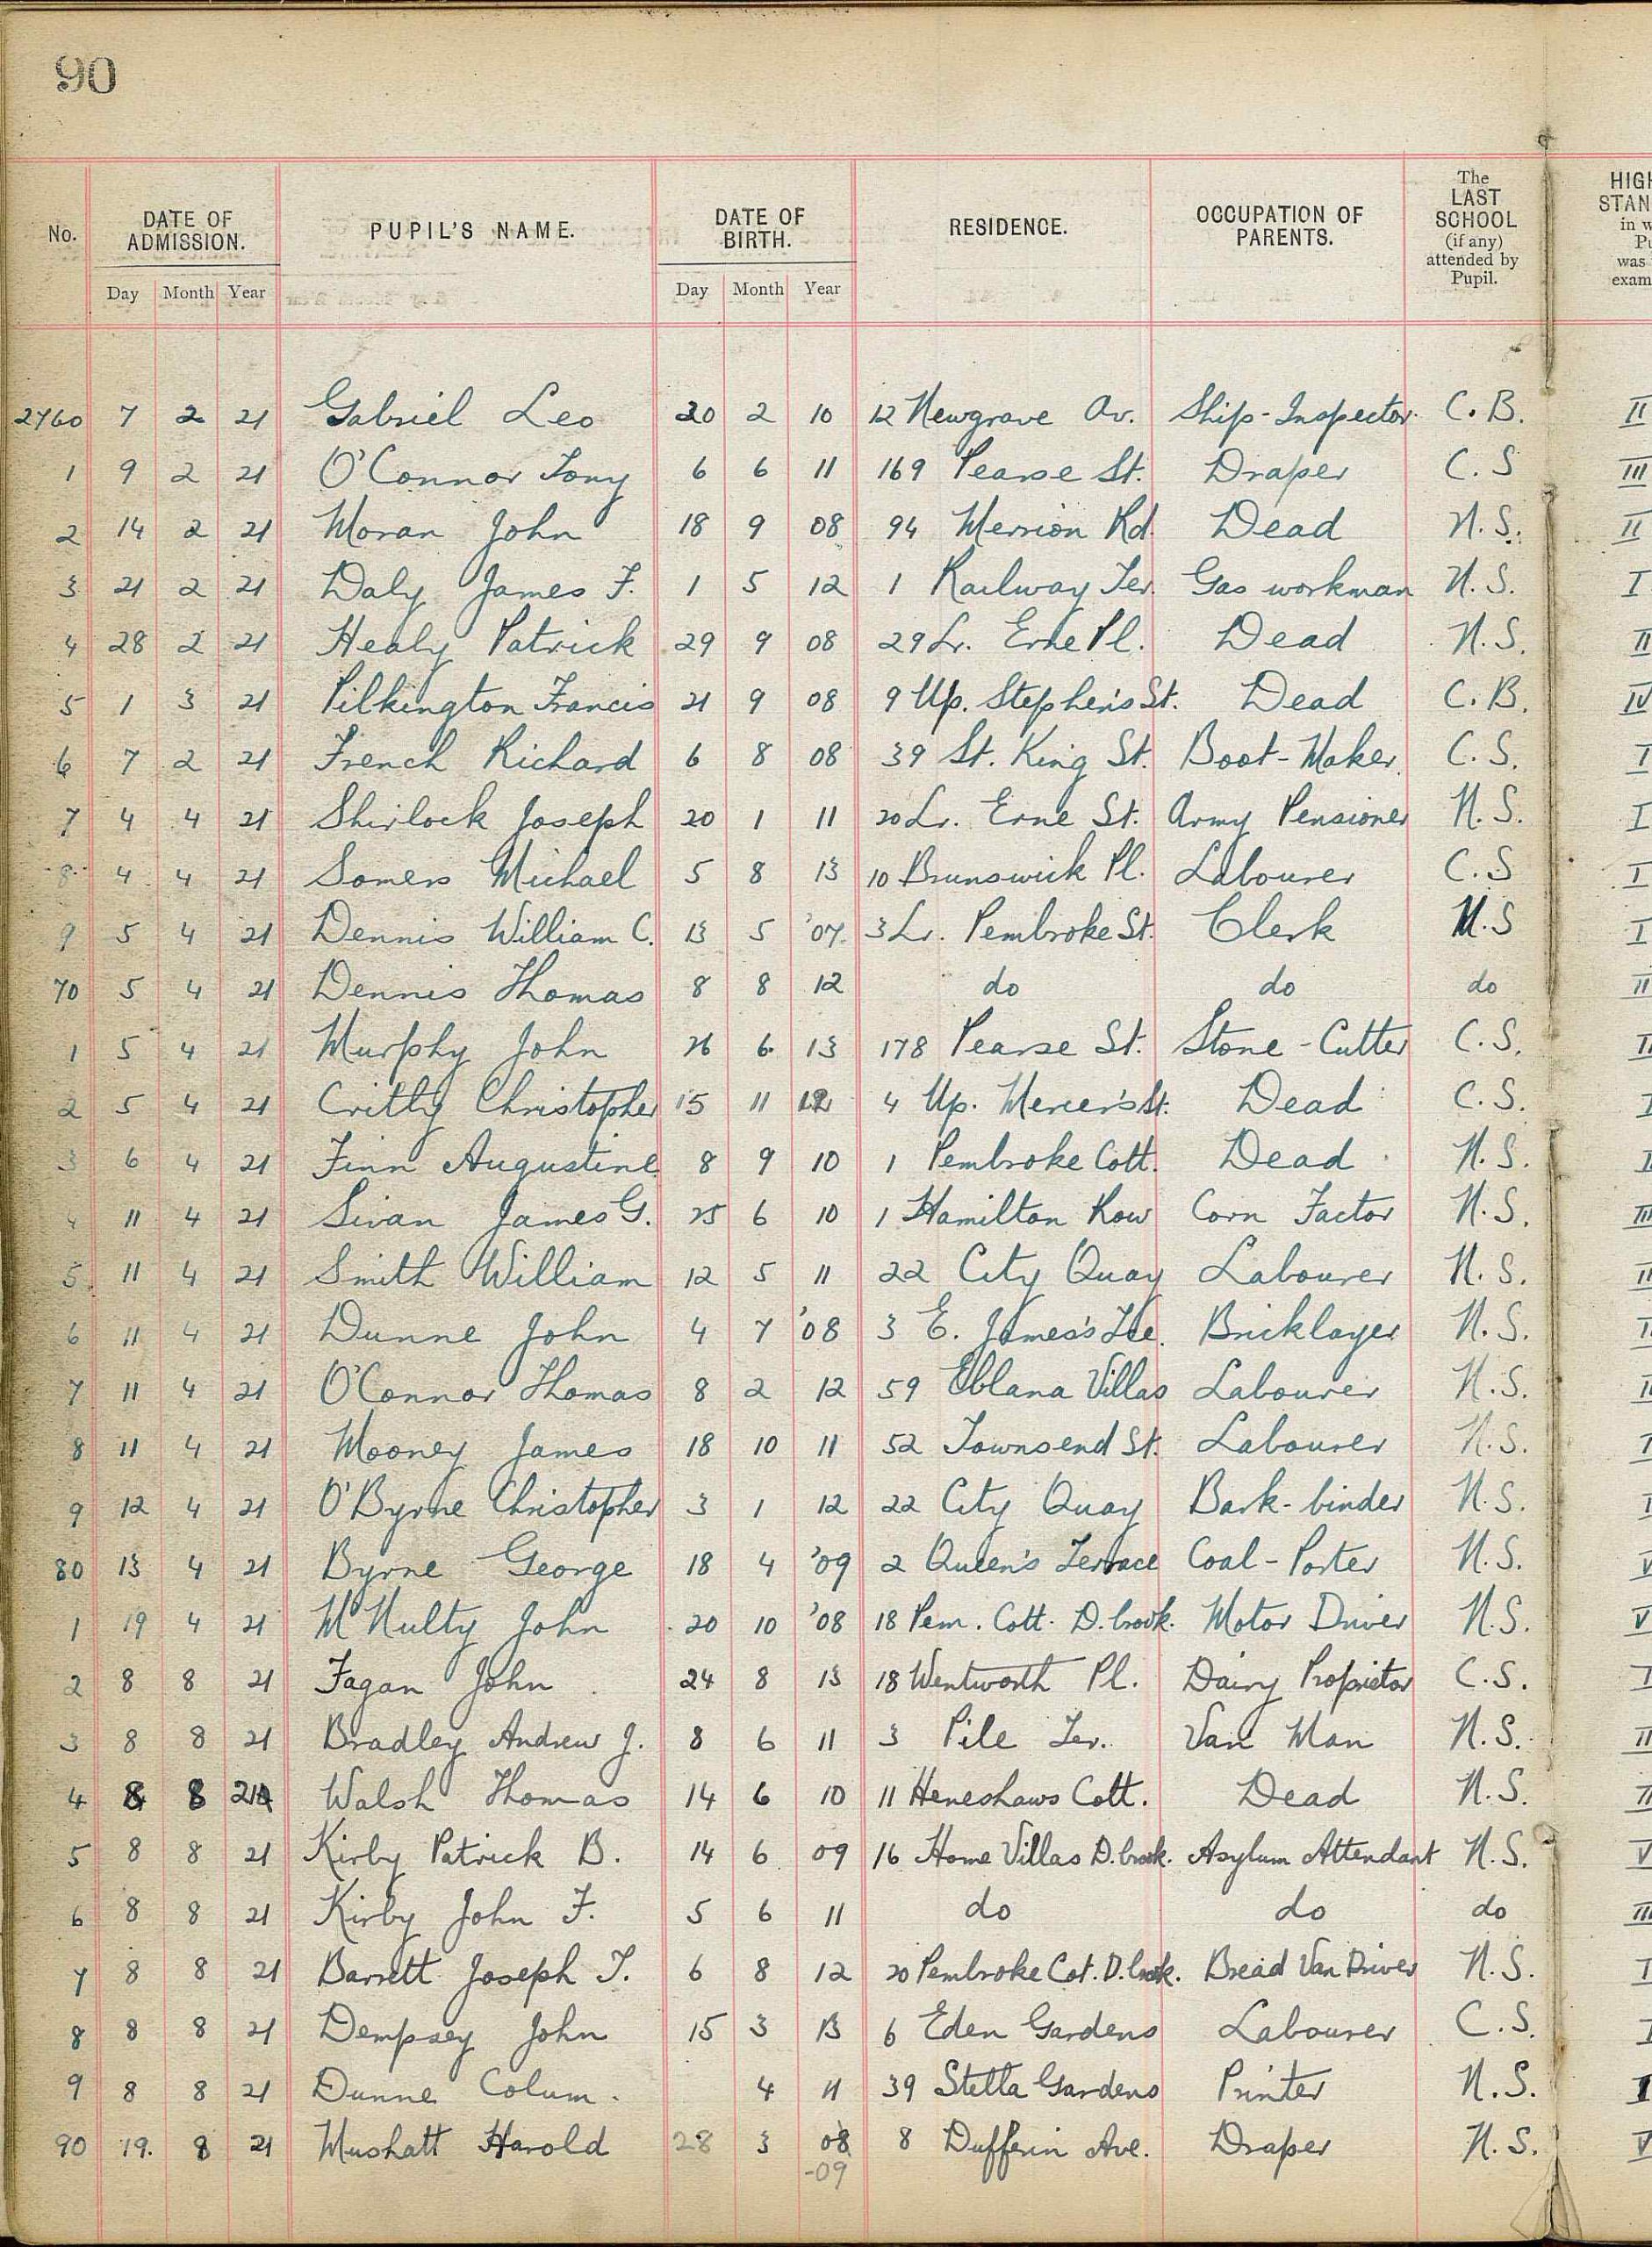 90
No. DATE OF ADMISSION. PUPIL'S NAME. DATE OF BIRTH. RESIDENCE. OCCUPATION OF PARENTS. The LAST SCHOOL (if any) attended by Pupil.
Day Month Year Day Month Year
2760 7 2 21 Gabriel Leo 20 2 10 12 Newgrave Av. Ship-Inspector. C.B. II
1 9 2 21 O'Connor Tony 6 6 11 169 Pearse St. Draper C.S III
2 14 2 21 Moran John 18 9 08 94 Merrion Rd. Dead N.S. II
3 21 2 21 Daly James F. 1 5 12 1 Railway Ter. Gas workman N.S. I
4 28 2 21 Healy Patrick 29 9 08 29 Lr. Erne Pl. Dead N.S. II
5 1 3 21 Pilkington Francis 21 9 08 9 Up. Stephen's St. Dead C.B. IV
6 7 2 21 French Richard 6 8 08 39 St. King St. Boot-Maker. C.S. I
7 4 4 21 Shirlock Joseph 20 1 11 20 Lr. Erne St. Army Pensioner N.S. I
8 4 4 21 Somers Michael 5 8 13 10 Brunswick Pl. Labourer C.S I
9 5 4 21 Dennis William C. 13 5 '07 3 Lr. Pembroke St. Clerk N.S I
70 5 4 21 Dennis Thomas 8 8 12 do do do II
1 5 4 21 Murphy John 26 6 13 178 Pearse St. Stone-Cutter C.S.
2 5 4 21 Critty Christopher 15 11 12 4 Up. Mercer's St. Dead C.S.
3 6 4 21 Finn Augustine 8 9 10 1 Pembroke Cott. Dead N.S.
4 11 4 21 Sivan James G. 25 6 10 1 Hamilton Row Corn Factor N.S. III
5 11 4 21 Smith William 12 5 11 22 City Quay Labourer N.S. II
6 11 4 21 Dunne John 4 7 '08 3 E. James's Tce. Bricklayer N.S.
7 11 4 21 O'Connor Thomas 8 2 12 59 Eblana Villas Labourer N.S.
8 11 4 21 Mooney James 18 10 11 52 Townsend St. Labourer N.S.
9 12 4 21 O'Byrne Christopher 3 1 12 22 City Quay Bark-binder N.S.
80 13 4 21 Byrne George 18 4 '09 2 Queen's Terrace Coal-Porter N.S. V
1 19 4 21 McNulty John 20 10 '08 18 Pem. Cott. D.brook. Motor Driver N.S. V
2 8 8 21 Fagan John 24 8 13 18 Wentworth Pl. Dairy Proprietor C.S.
3 8 8 21 Bradley Andrew J. 8 6 11 3 Pile Ter. Van Man N.S. II
4 8 8 21 Walsh Thomas 14 6 10 11 Heneshaws Cott. Dead N.S. II
5 8 8 21 Kirby Patrick B. 14 6 09 16 Home Villas D.brook. Asylum Attendant N.S. V
6 8 8 21 Kirby John F. 5 6 11 do do do III
7 8 8 21 Barrett Joseph T. 6 8 12 20 Pembroke Cot. D.brook. Bread Van Driver N.S.
8 8 8 21 Dempsey John 15 3 13 6 Eden Gardens Labourer C.S.
9 8 8 21 Dunne Colum. 4 11 39 Stella Gardens Printer N.S. I
90 19. 8 21 Mushatt Harold 28 3 08 8 Dufferin Ave. Draper N.S. V
-09